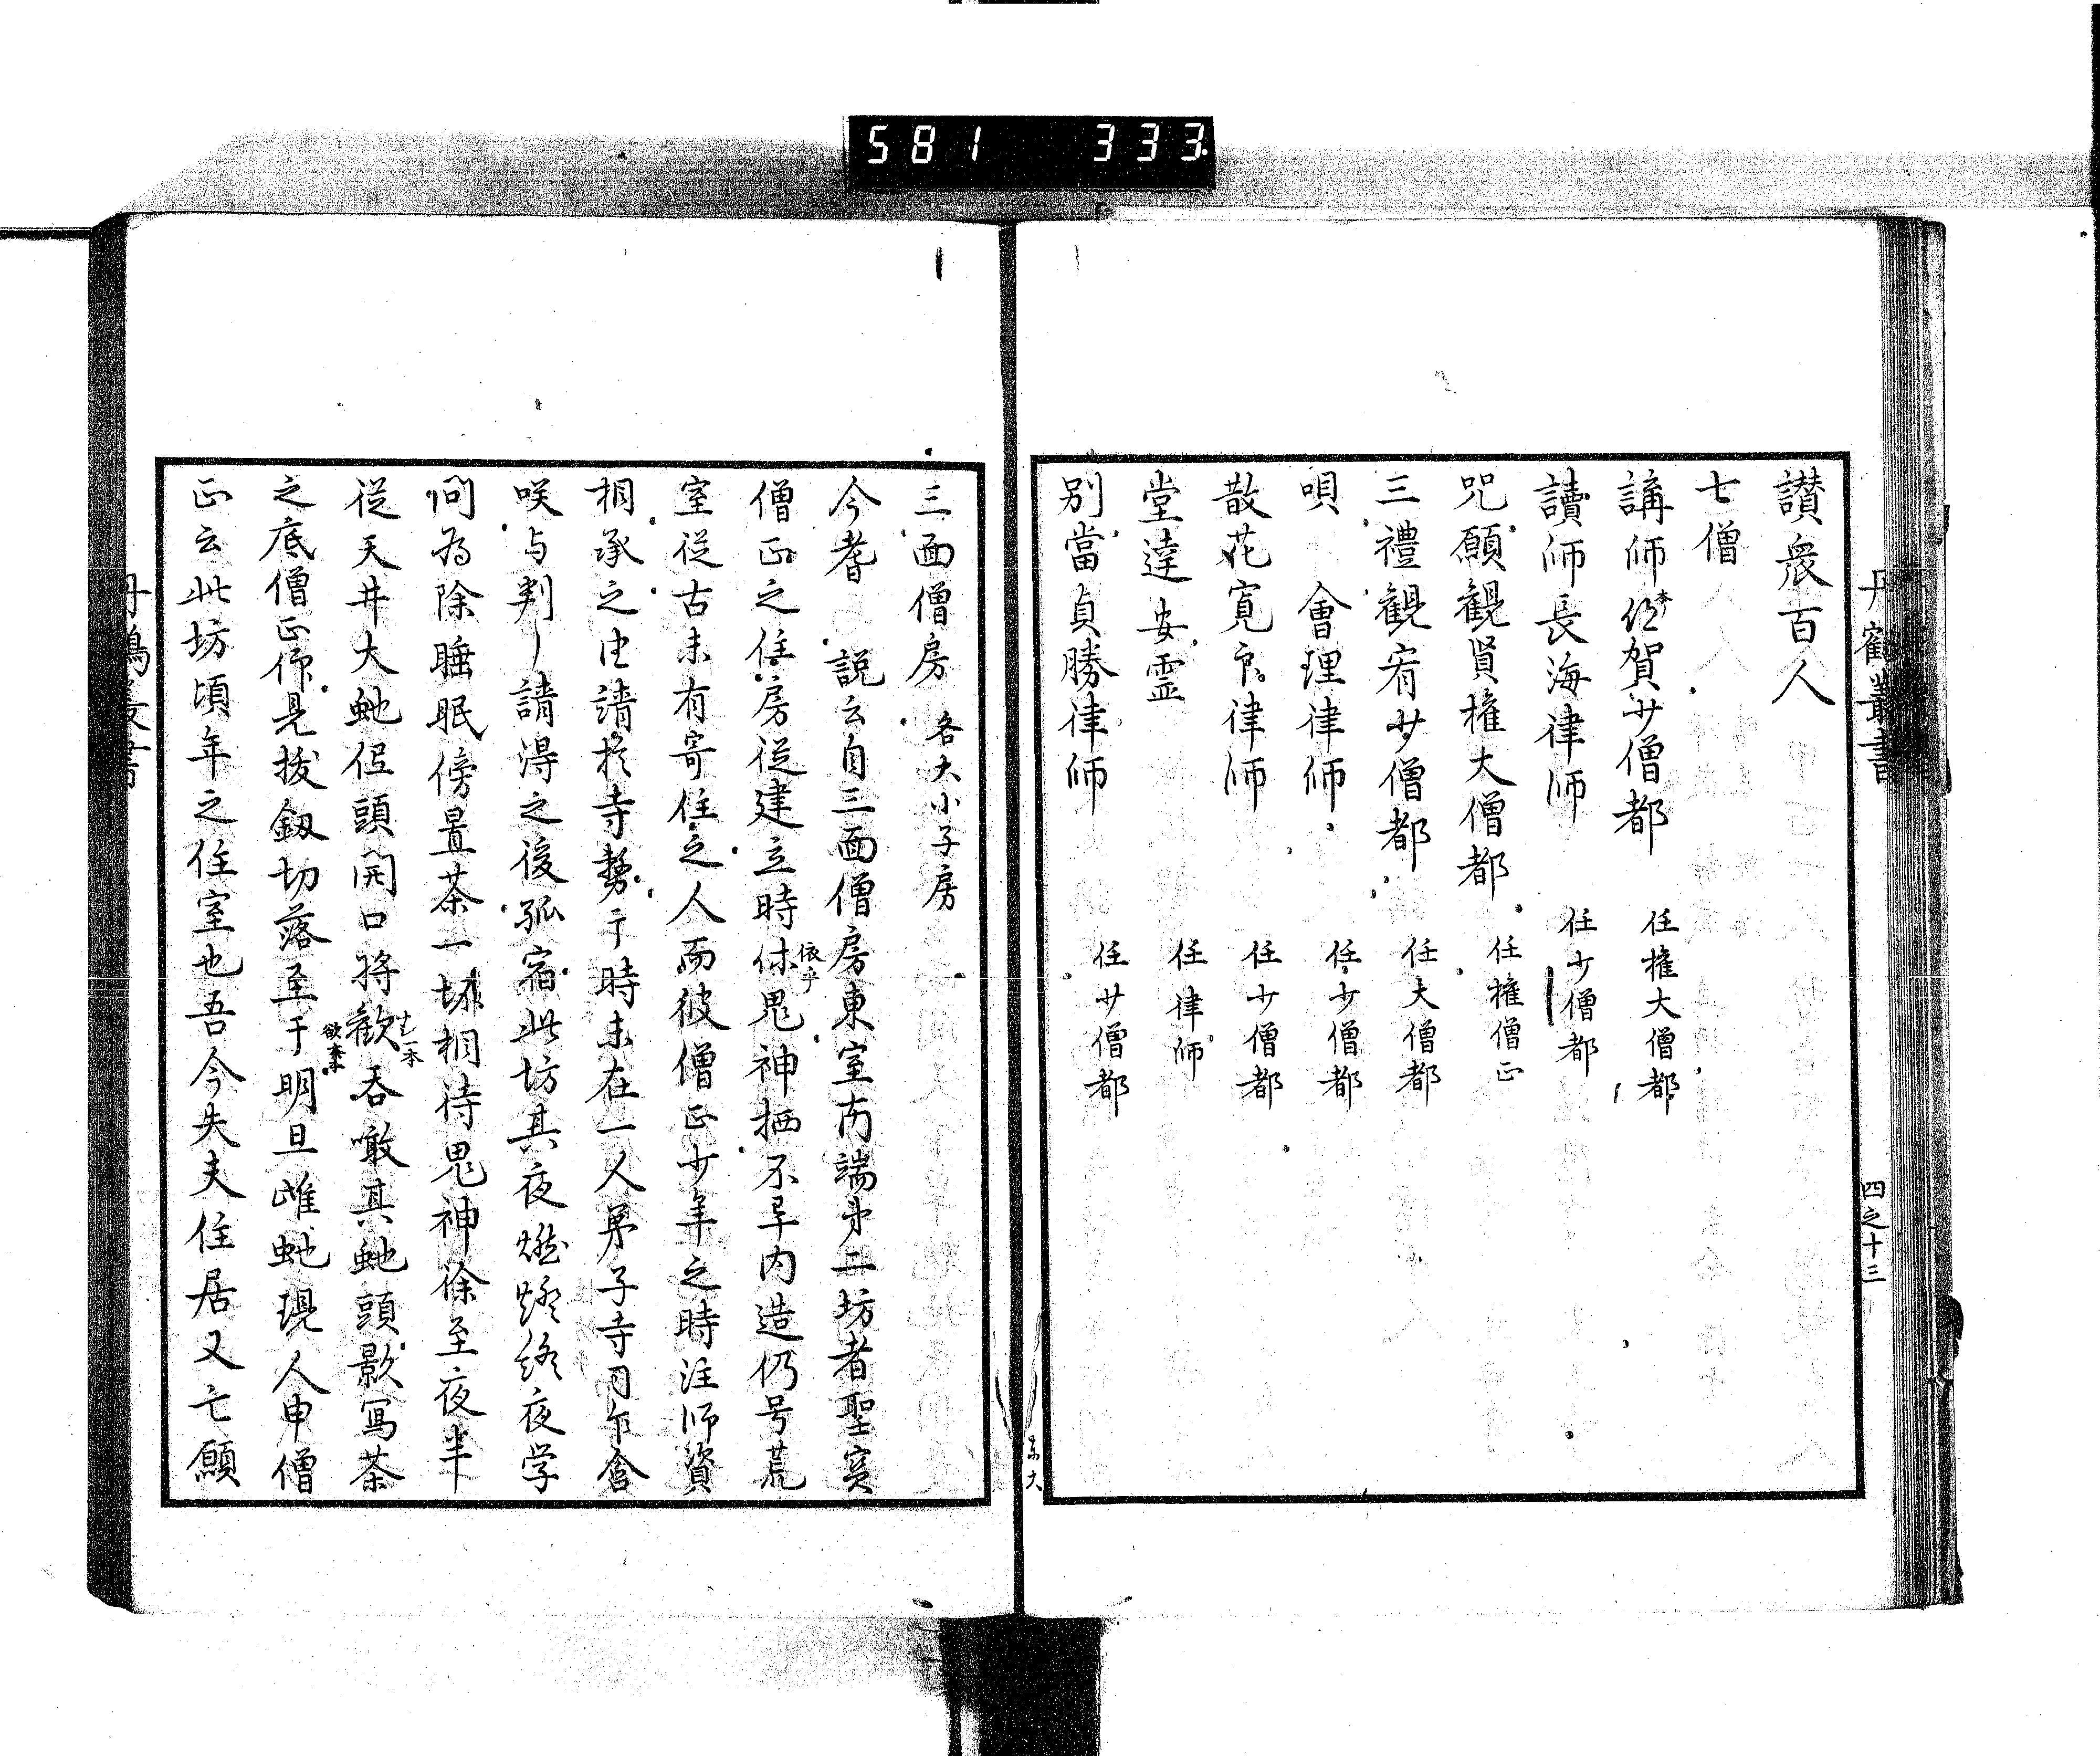 581 333
丹鶴叢書
四之十三
讃衆百人
七僧
講師仁賀少僧都 任權大僧都
讀師長海律師 任少僧都
咒願觀賢權大僧都 任權僧正
三禮觀宥少僧都 任大僧都
唄 會理律師 任少僧都
散花寛 律師 任少僧都
堂達安霊 任律師
別當貞勝律師 任少僧都
東大
三面僧房 各大小子房
今耆 説云自三面僧房東室南端第二坊者聖寶
僧正之住房從建立時付鬼神栖不早内造仍号荒
依乎
室從古未有寄住之人而彼僧正少年之時注師資
相承之由請於寺務于時未在一人弟子寺司乍含
咲与判請得之後孤宿此坊其夜燃燈終夜学
問為除睡眠傍置茶一坏相待鬼神徐至夜半
從天井大虵低頭開口将歓呑噉其虵頭影寫茶
之底僧正仰見抜釼切落至于明旦雌虵現人申僧
正云此坊頃年之住室也吾今失夫住居又亡願
丹鶴叢書